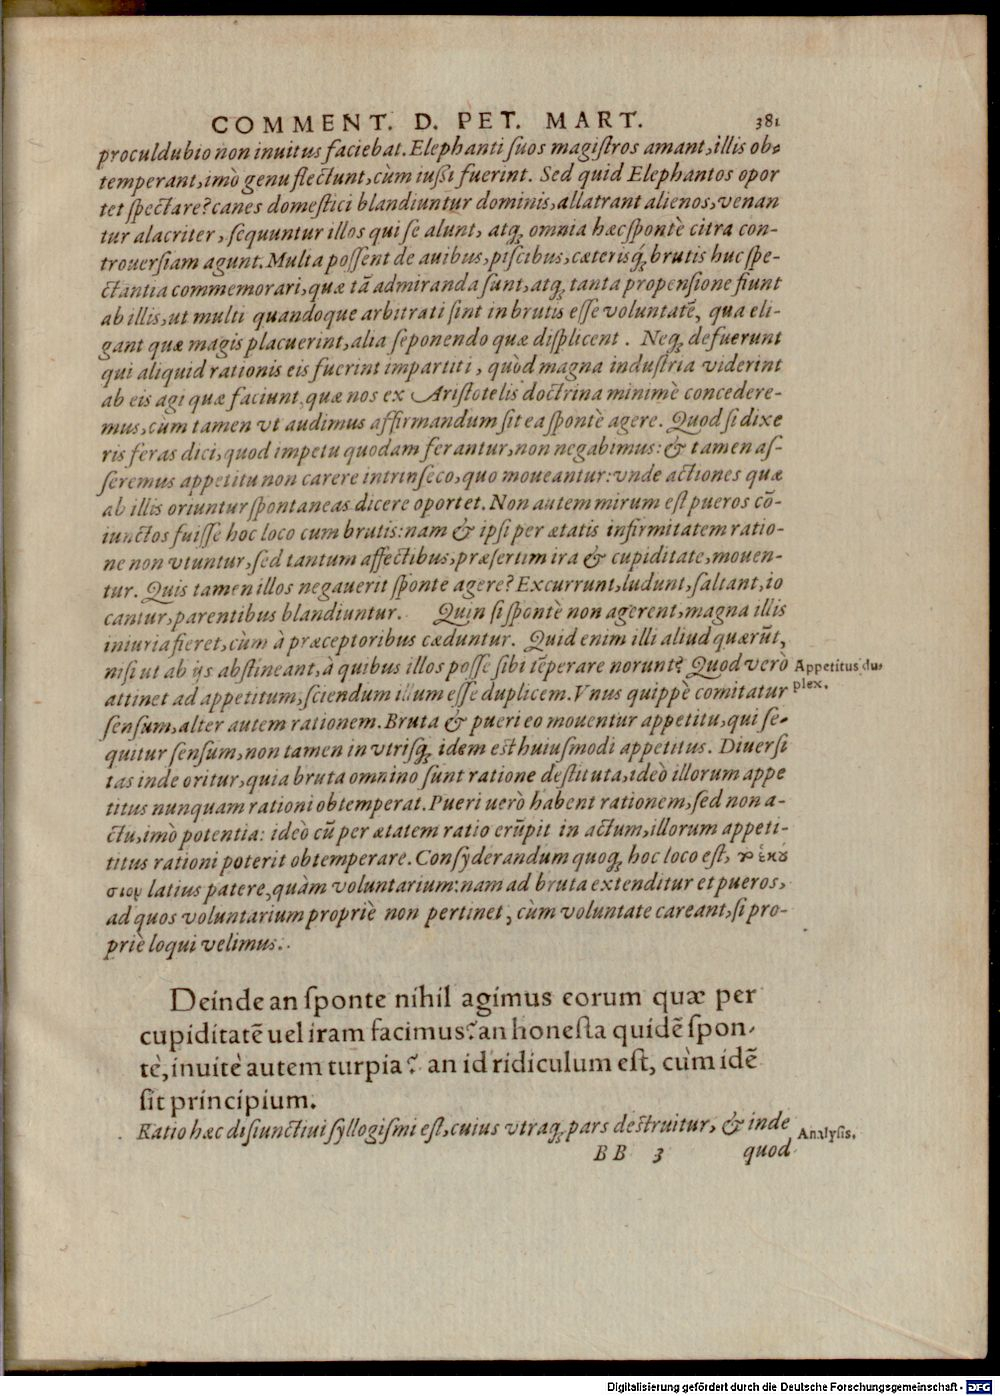 COMMENT. D. PET. MART. 381
proculdubio non inuitus faciebat. Elephanti suos magistros amant, illis ob-
temperant, imò genu flectunt, cùm iussi fuerint. Sed quid Elephantos opor
tet spectare? canes domestici blandiuntur dominis, allatrant alienos, venan
tur alacriter, sequuntur illos qui se alunt, atq́; omnia hæc spontè citra con-
trouersiam agunt. Multa possent de auibus, piscibus, cæterisq́; brutis huc spe-
ctantia commemorari, quæ tã admiranda sunt, atq́; tanta propensione fiunt
ab illis, ut multi quandoque arbitrati sint in brutis esse voluntatẽ, qua eli-
gant quæ magis placuerint, alia seponendo quæ displicent. Neq́; defuerunt
qui aliquid rationis eis fuerint impartiti, quòd magna industria viderint
ab eis agi quæ faciunt, quæ nos ex Aristotelis doctrina minimè concedere-
mus, cùm tamen vt audimus affirmandum sit ea spontè agere. Quod si dixe
ris feras dici, quod impetu quodam ferantur, non negabimus: & tamen as-
seremus appetitu non carere intrinseco, quo moueantur: vnde actiones quæ
ab illis oriuntur spontaneas dicere oportet. Non autem mirum est pueros cõ-
iunctos fuisse hoc loco cum brutis: nam & ipsi per ætatis infirmitatem ratio-
ne non vtuntur, sed tantum affectibus, præsertim ira & cupiditate, mouen-
tur. Quis tamen illos negauerit sponte agere? Excurrunt, ludunt, saltant, io
cantur, parentibus blandiuntur. Quin si spontè non agerent, magna illis
iniuria fieret, cùm à præceptoribus cæduntur. Quid enim illi aliud quærũt,
nisi ut ab ijs abstineant, à quibus illos posse sibi tẽperare norunt? Quod verò
Appetitus du-
plex.
attinet ad appetitum, sciendum illum esse duplicem. Vnus quippè comitatur
sensum, alter autem rationem. Bruta & pueri eo mouentur appetitu, qui se-
quitur sensum, non tamen in vtrisq́; idem est huiusmodi appetitus. Diuersi
tas inde oritur, quia bruta omnino sunt ratione destituta, ideò illorum appe
titus nunquam rationi obtemperat. Pueri uerò habent rationem, sed non a-
ctu, imò potentia: ideò cũ per ætatem ratio erũpit in actum, illorum appeti-
titus rationi poterit obtemperare. Consyderandum quoq́; hoc loco est, τὸ ἑκού
σιον latius patere, quàm voluntarium: nam ad bruta extenditur et pueros,
ad quos voluntarium propriè non pertinet, cùm voluntate careant, si pro-
priè loqui velimus.
Deinde an sponte nihil agimus eorum quæ per
cupiditatẽ uel iram facimus? an honesta quidẽ spon-
tè, inuitè autem turpia? an id ridiculum est, cùm idẽ
sit principium.
Ratio hæc disiunctiui syllogismi est, cuius vtraq́; pars destruitur, & inde
Analysis.
BB 3 quod
Digitalisierung gefördert durch die Deutsche Forschungsgemeinschaft - DFG